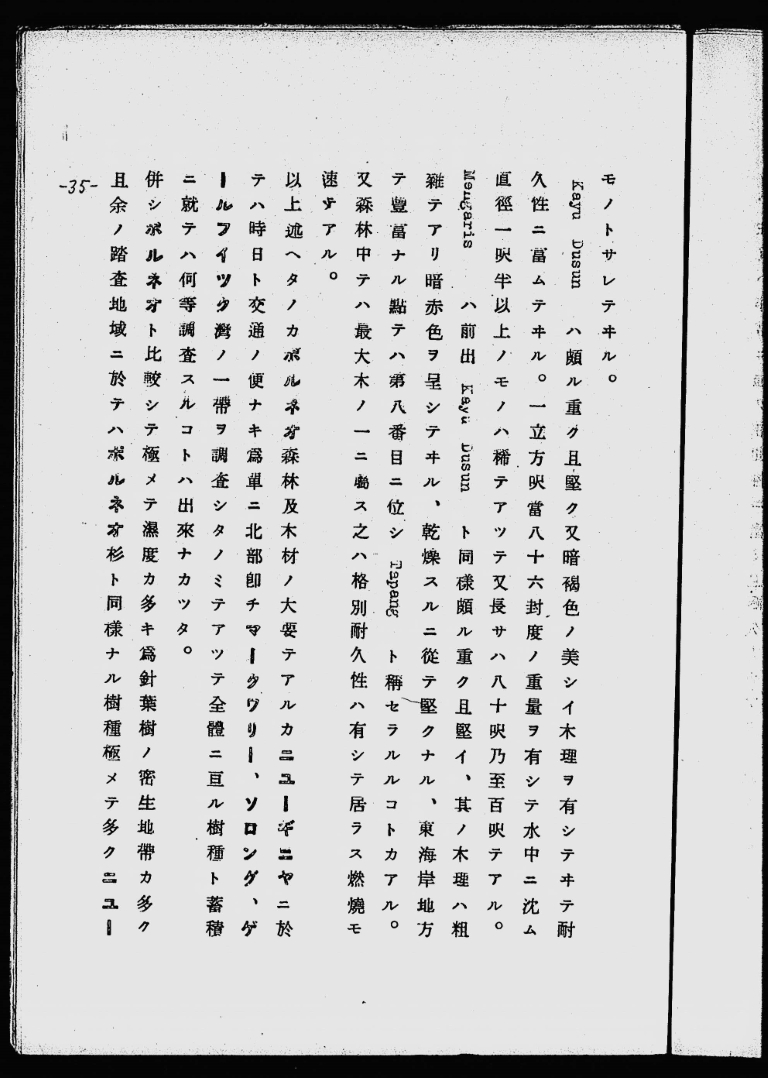 モノトサレテヰル。
Kayu Dusun ハ頗ル重ク且堅ク又暗褐色ノ美シイ木理ヲ有シテヰテ耐
久性ニ富ムテヰル。一立方呎當八十六封度ノ重量ヲ有シテ水中ニ沈ム
直徑一呎半以上ノモノハ稀テアツテ又長サハ八十呎乃至百呎テアル。
Mengaris ハ前出 Kayu Dusun ト同樣頗ル重ク且堅イ、其ノ木理ハ粗
雜テアリ暗赤色ヲ呈シテヰル、乾燥スルニ從テ堅クナル、東海岸地方
テ豐富ナル點テハ第八番目ニ位シ Tapang ト稱セラルルコトカアル。
又森林中テハ最大木ノ一ニ屬ス之ハ格別耐久性ハ有シテ居ラス燃燒モ
速テアル。
以上述ヘタノカボルネオ森林及木材ノ大要テアルカニユーギニヤニ於
テハ時日ト交通ノ便ナキ爲單ニ北部卽チマークワリー、ソロング、ゲ
ールフイツク灣ノ一帶ヲ調査シタノミテアツテ全體ニ亘ル樹種ト蓄積
ニ就テハ何等調査スルコトハ出來ナカツタ。
併シボルネオト比較シテ極メテ濕度カ多キ爲針葉樹ノ密生地帶カ多ク
且余ノ踏査地域ニ於テハボルネオ杉ト同樣ナル樹種極メテ多クニユー
-35-